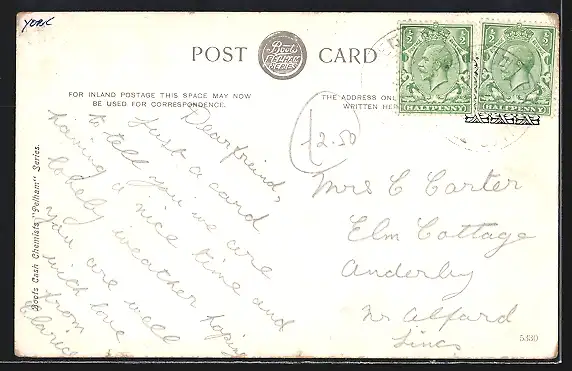 YORK
POST
Boots
PELHAM
SERIES
CARD
FOR INLAND POSTAGE THIS SPACE MAY NOW
BE USED FOR CORRESPONDENCE.
THE ADDRESS ONL
WRITTEN HER
HALFPENNY
HALFPENNY
12.50
Dear freind,
Just a card
to tell you we are
having a nice time and
lovely weather hoping
you are well
with love
from
Clarice
Mrs C Carter
Elm Cottage
Anderby
Nr Alford
Lincs
Boots Cash Chemists "Pelham" Series.
5330